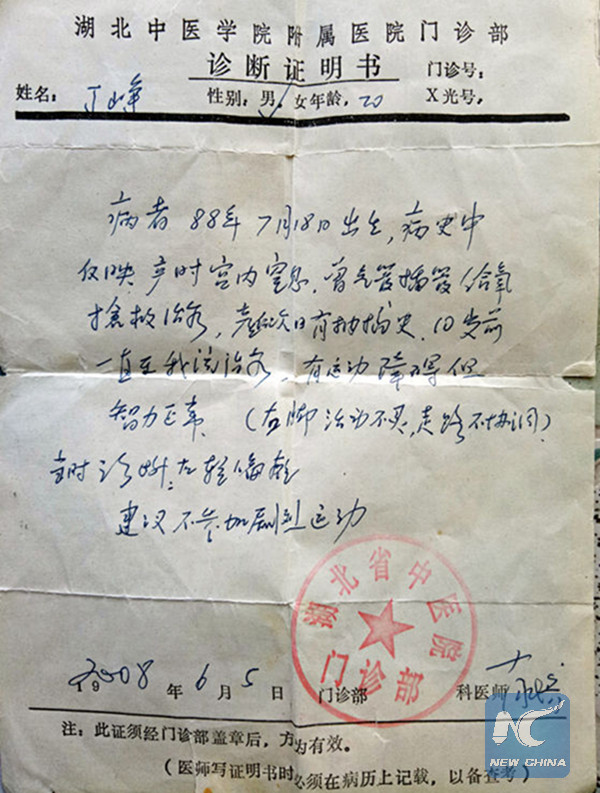 湖北中医学院附属医院门诊部
诊断证明书 门诊号:
姓名: 丁峥 性别: 男, 女 年龄, 20 X光号,
病者 88年7月18日出生, 病史中
反映 产时宫内窒息, 曾气管插管给氧
抢救治疗, 次日有抽搐史, 10岁前
一直在我院治疗, 有运动障碍但
智力正常 (右脚活动不灵, 走路不协调)
当时诊断: 左轻偏瘫
建议不参加剧烈运动
湖北省中医院
门诊部
2008年6月5日 门诊部 科医师
注: 此证须经门诊部盖章后, 方为有效。
(医师写证明书时必须在病历上记载, 以备查考)
NC
NEW CHINA